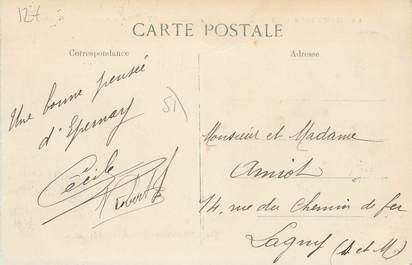 127
CARTE POSTALE
Correspondance
Adresse
Une bonne pensée
d'Epernay
Cécile
Robert
51
Monsieur et Madame
Amiot
14, rue du Chemin de fer
Lagny (S et M)